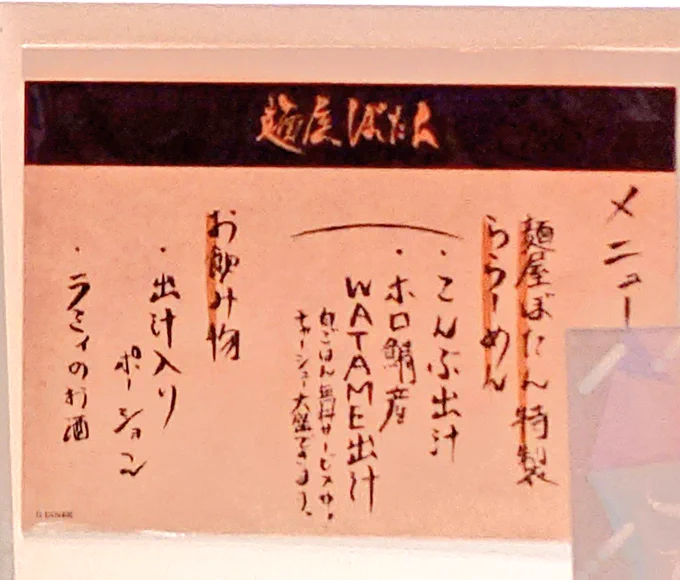 麺屋ぼたん
メニュー
麺屋ぼたん特製
ららーめん
・こんぶ出汁
・ホロ鯖産
WATAME出汁
白ごはん無料サービス中。
チャーシュー大盛できます。
お飲み物
・出汁入り
ポーション
・ラミィのお酒